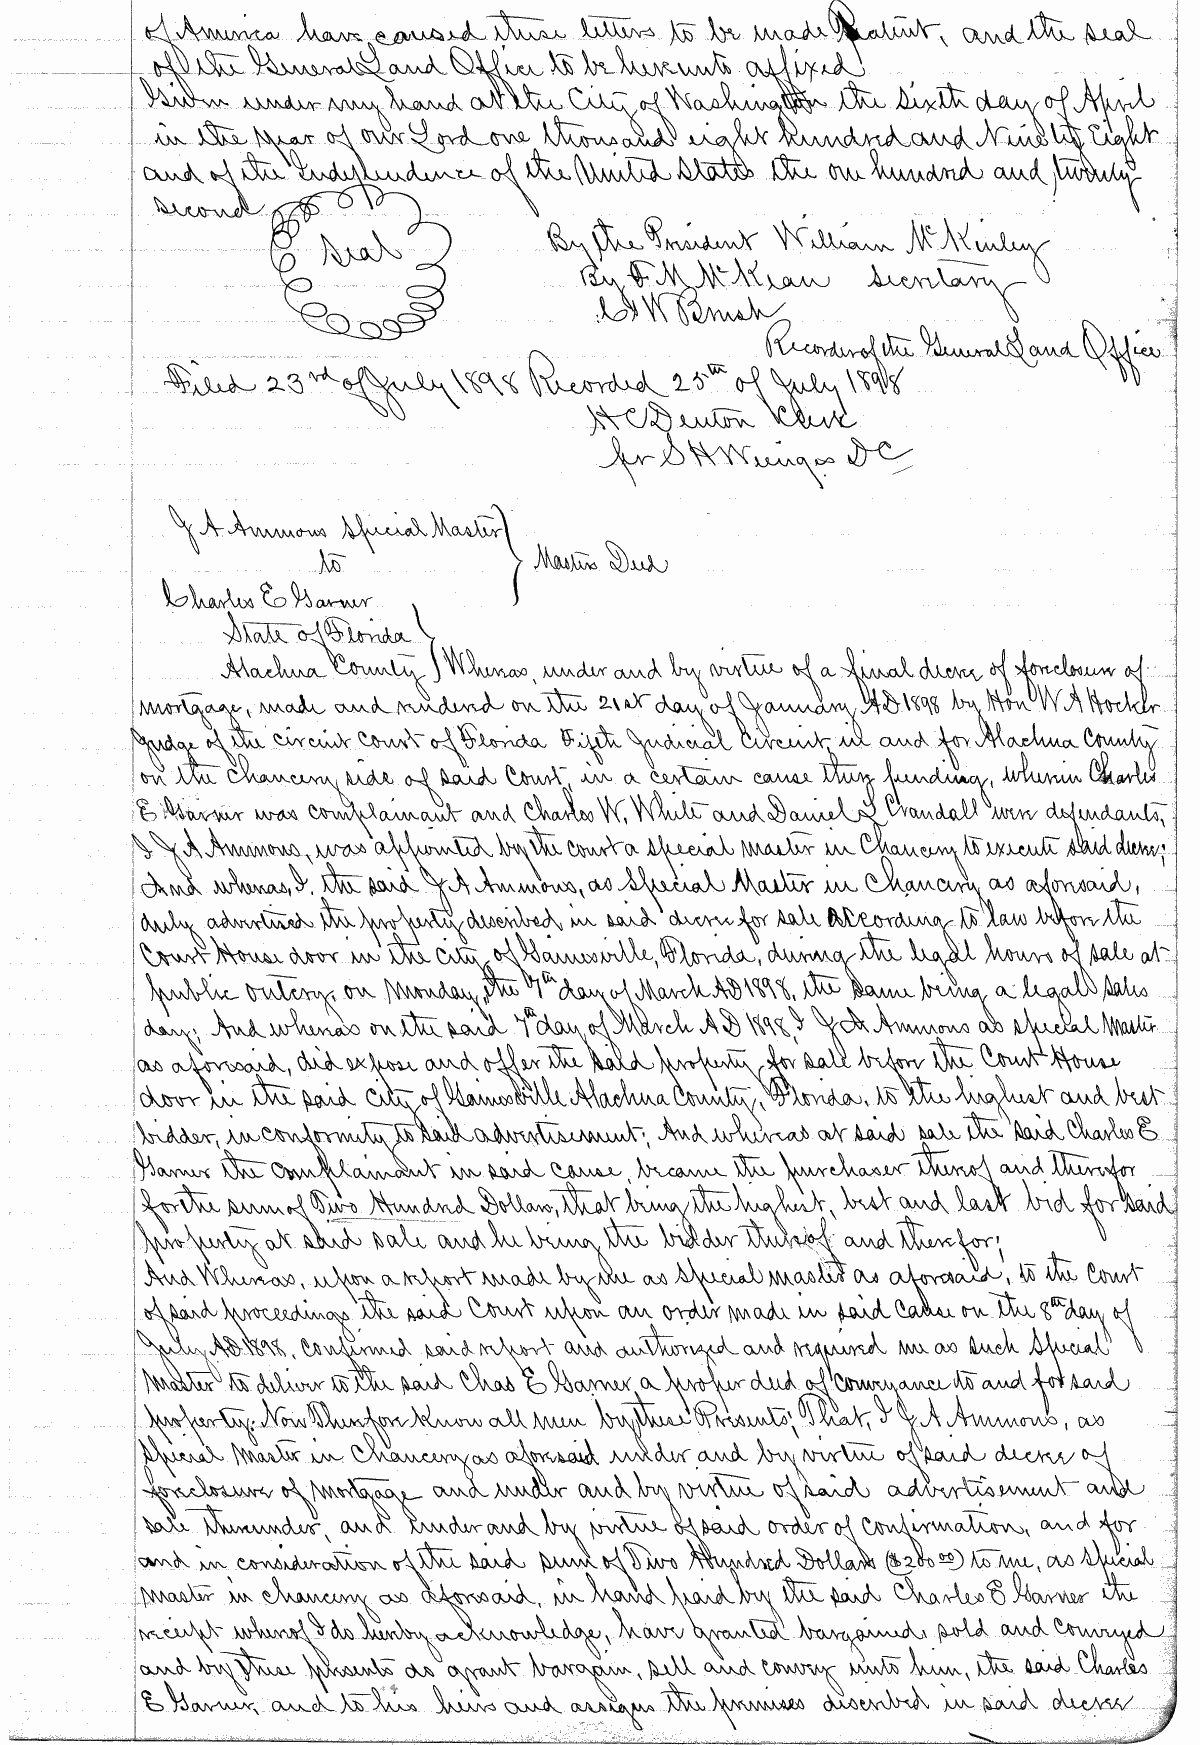 of America have caused these letters to be made Patent, and the seal
of the General Land Office to be hereunto affixed
Given under my hand at the City of Washington the sixth day of April
in the year of our Lord one thousand eight hundred and Ninety Eight
and of the Independence of the United States the one hundred and twenty
second
Seal
By the President William McKinley
By F. M. McKean Secretary
C H W Brush
Recorder of the General Land Office
Filed 23rd of July 1898 Recorded 25th of July 1898
H C Denton Clerk
for S H Wienges D C
J A Ammons Special Master
to
Masters Deed
Charles E Garner
State of Florida
Alachua County Whereas, under and by virtue of a final decree of foreclosure of
mortgage, made and rendered on the 21st day of January AD 1898 by Hon W A Hocker
Judge of the circuit Court of Florida Fifth Judicial Circuit in and for Alachua County
on the chancery side of said Court, in a certain cause then pending, wherein Charles
E Garner was complainant and Charles W. White and Daniel L Crandall were defendants,
I J A Ammons, was appointed by the court a special master in Chancery to execute said decree;
And whereas, I, the said J A Ammons, as Special Master in Chancery as aforesaid,
duly advertised the property described in said decree for sale according to law before the
Court House door in the city of Gainesville, Florida, during the legal hours of sale at
public outcry, on Monday, the 7th day of March AD 1898, the same being a legal sales
day; And whereas on the said 7th day of March AD 1898, I J A Ammons as special Master
as aforesaid, did expose and offer the said property for sale before the Court House
door in the said city of Gainesville Alachua County, Florida, to the highest and best
bidder, in conformity to said advertisement; And whereas at said sale the said Charles E
Garner the complainant in said cause, became the purchaser thereof and therefor
for the sum of Two Hundred Dollars, that being the highest, best and last bid for said
property at said sale and he being the bidder thereof and therefor;
And Whereas, upon a report made by me as special master as aforesaid, to the Court
of said proceedings the said Court upon an order made in said cause on the 8th day of
July AD 1898, confirmed said report and authorized and required me as such Special
Master to deliver to the said Chas E Garner a proper deed of conveyance to and for said
property. Now Therefore Know all men by these Presents; That, I J A Ammons, as
special Master in Chancery as aforesaid under and by virtue of said decree of
foreclosure of mortgage and under and by virtue of said advertisement and
sale thereunder, and under and by virtue of said order of confirmation, and for
and in consideration of the said sum of Two Hundred Dollars ($200 00) to me, as special
master in chancery as aforesaid, in hand paid by the said Charles E Garner the
receipt whereof I do hereby acknowledge, have granted bargained, sold and conveyed
and by these presents do grant bargain, sell and convey unto him, the said Charles
E Garner, and to his heirs and assigns the premises described in said decree